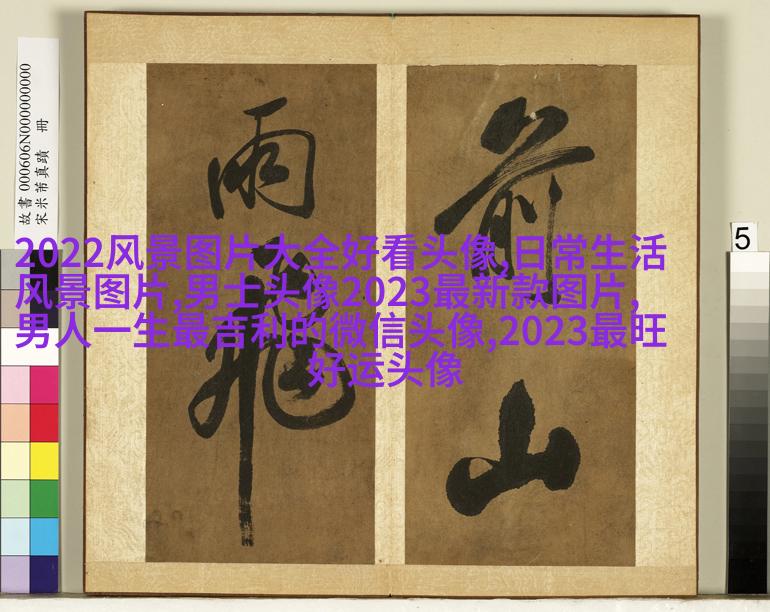 前山
雨飛
故書 000606N000000000
宋米芾真蹟 冊
5
2022风景图片大全好看头像,日常生活
风景图片,男士头像2023最新款图片,
男人一生最吉利的微信头像,2023最旺
好运头像